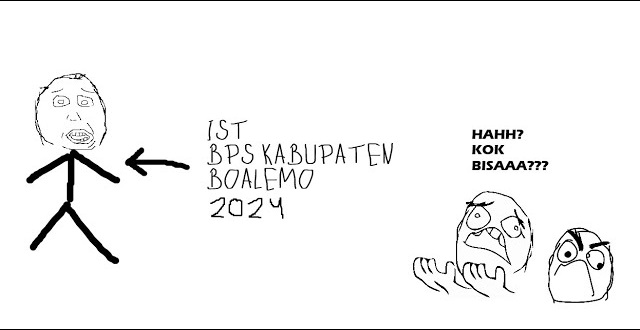 IST
BPS KABUPATEN
BOALEMO
2024
HAHH?
KOK
BISAAA???